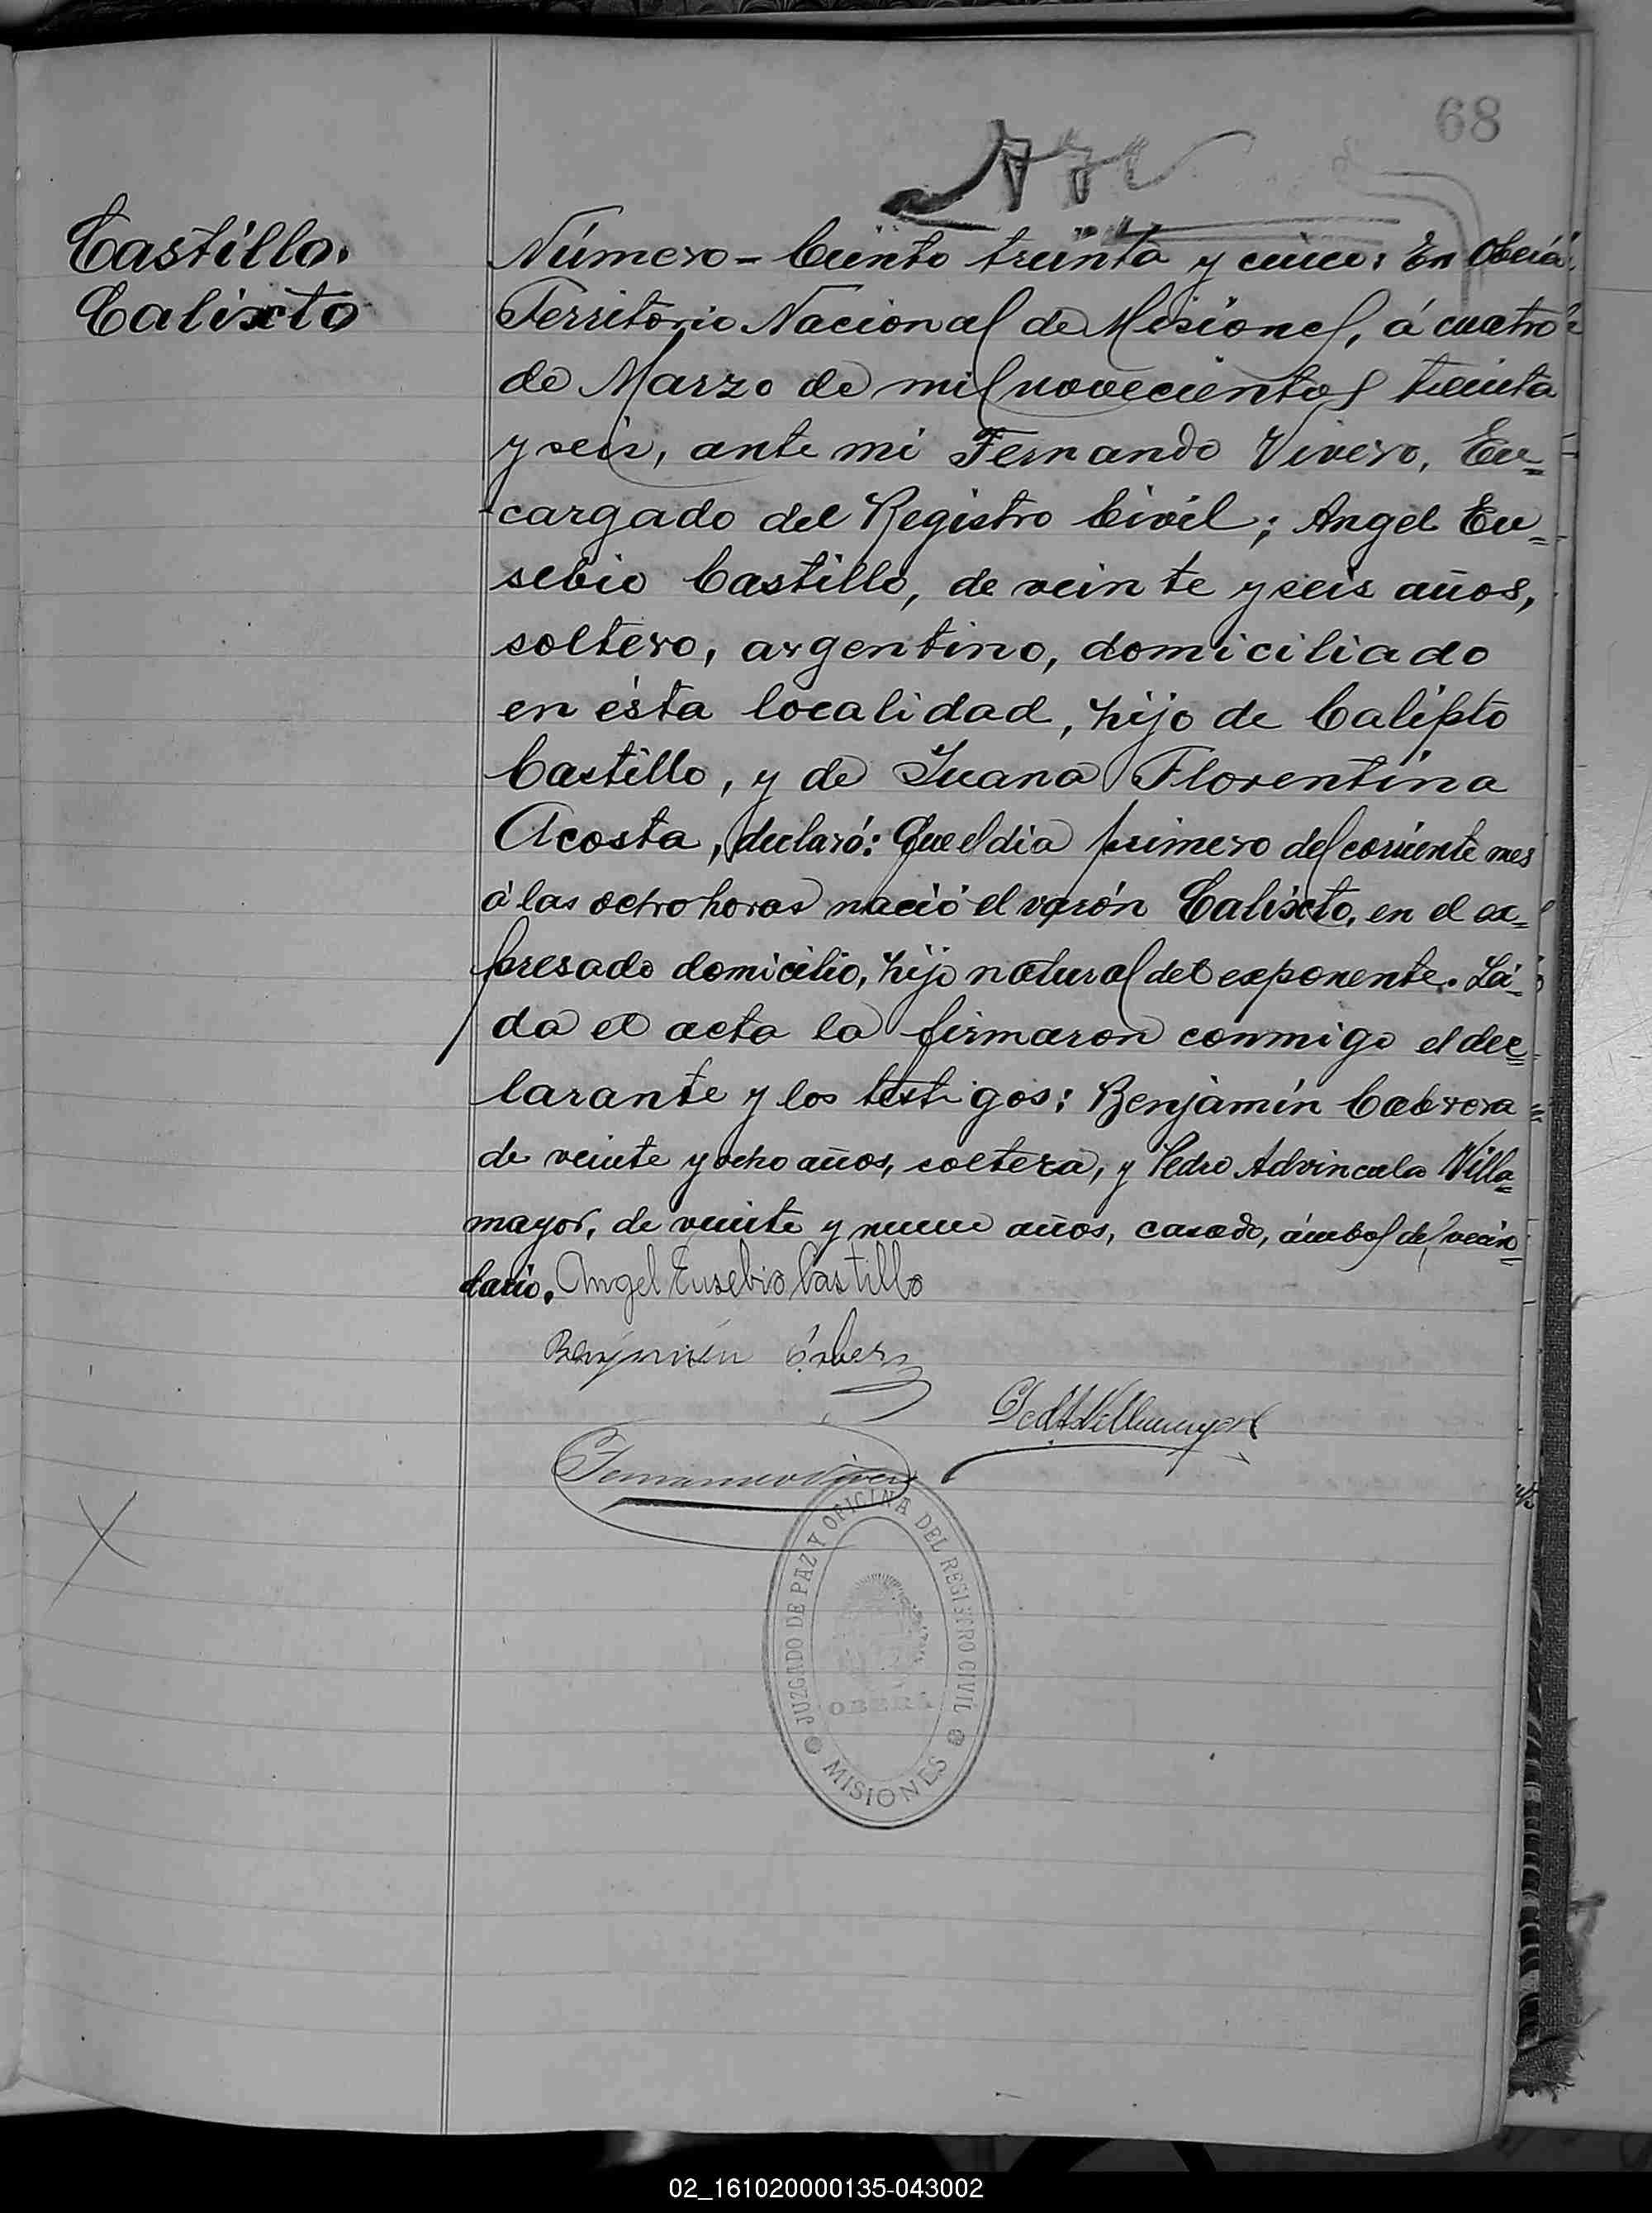 68
Castillo.
Calixto
Número = Ciento treinta y cinco: En Oberá.
Territorio Nacional de Misiones, á cuatro
de Marzo de mil novecientos treinta
y seis, ante mi Fernando Vivero, En=
cargado del Registro Civil; Angel Eu=
sebio Castillo, de veinte y seis años,
soltero, argentino, domiciliado
en ésta localidad, hijo de Calipto
Castillo, y de Juana Florentina
Acosta, declaró: Que el dia primero del corriente mes
á las ocho horas nació el varón Calixto, en el ex=
presado domicilio, hijo natural del exponente. Lei=
da el acta la firmaron conmigo el dec=
larante y los testigos: Benjamín Cabrera
de veinte y ocho años, soltera, y Pedro Advincula Villa=
mayor, de veinte y nueve años, casado, ámbos del vecin=
dario. Angel Eusebio Castillo
Benjamin Cabrera
Ped A Villamayor
Fernando Vivero
JUZGADO DE PAZ Y OFICINA DEL REGISTRO CIVIL
OBERÁ
MISIONES
02_161020000135-043002